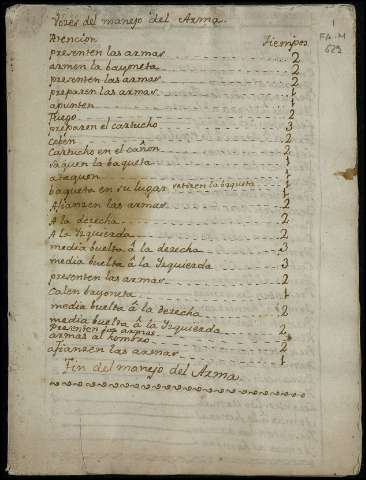 Vozes del manejo del Arma.
1
FA.M
629
Atencion
Tiempos
presenten las armas 2
armen la bayoneta 2
presenten las armas 2
preparen las armas 1
apunten 1
Fuego 2
preparen el cartucho 3
ceben 2
Cartucho en el cañon 2
saquen la baqueta 1
ataquen 1
baqueta en su lugar retiren la baqueta 1
Afianzen las armas 2
A la derecha 2
A la Izquierda 2
media buelta â la derecha 3
media buelta â la Izquierda 3
presenten las armas 2
calen bayoneta 1
media buelta â la derecha 2
media buelta â la Izquierda 2
Presenten las armas
armas al hombro 2
afianzen las armas 1
Fin del manejo del Arma.